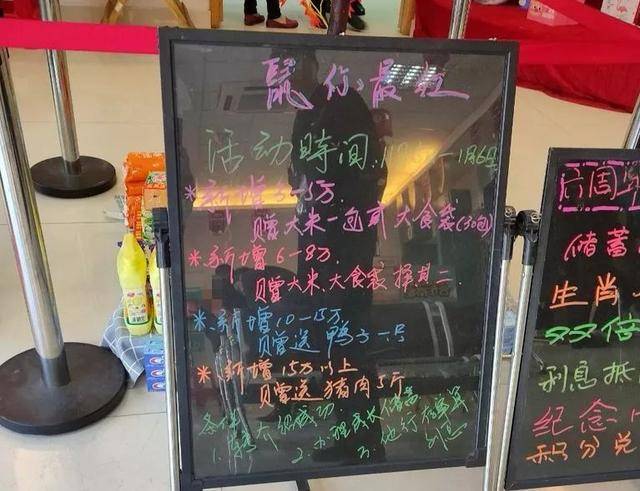 鼠你最红
活动時间:1月5日—1月6日
*新增3-5万
贈大米一包或大食袋(30包)
*新增6-8万
贝曽大米、大食袋 擇其二
*新增10-15万
贝曽送 鸭子一只
*新增15万以上
贝曽送猪肉5斤
条件
1、
2、
3、他行
利息
片周
储蓄
生肖
双倍
利息抵
纪念
积分兑